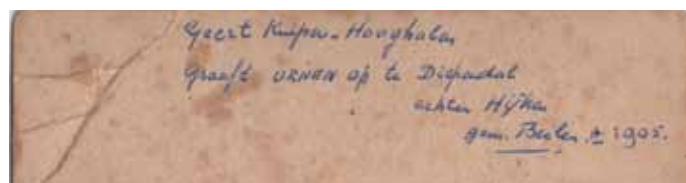 Geert Kuiper - Hooghalen
graaft URNEN op te Diepadal
achter Hijken
gem. Beilen ± 1905.